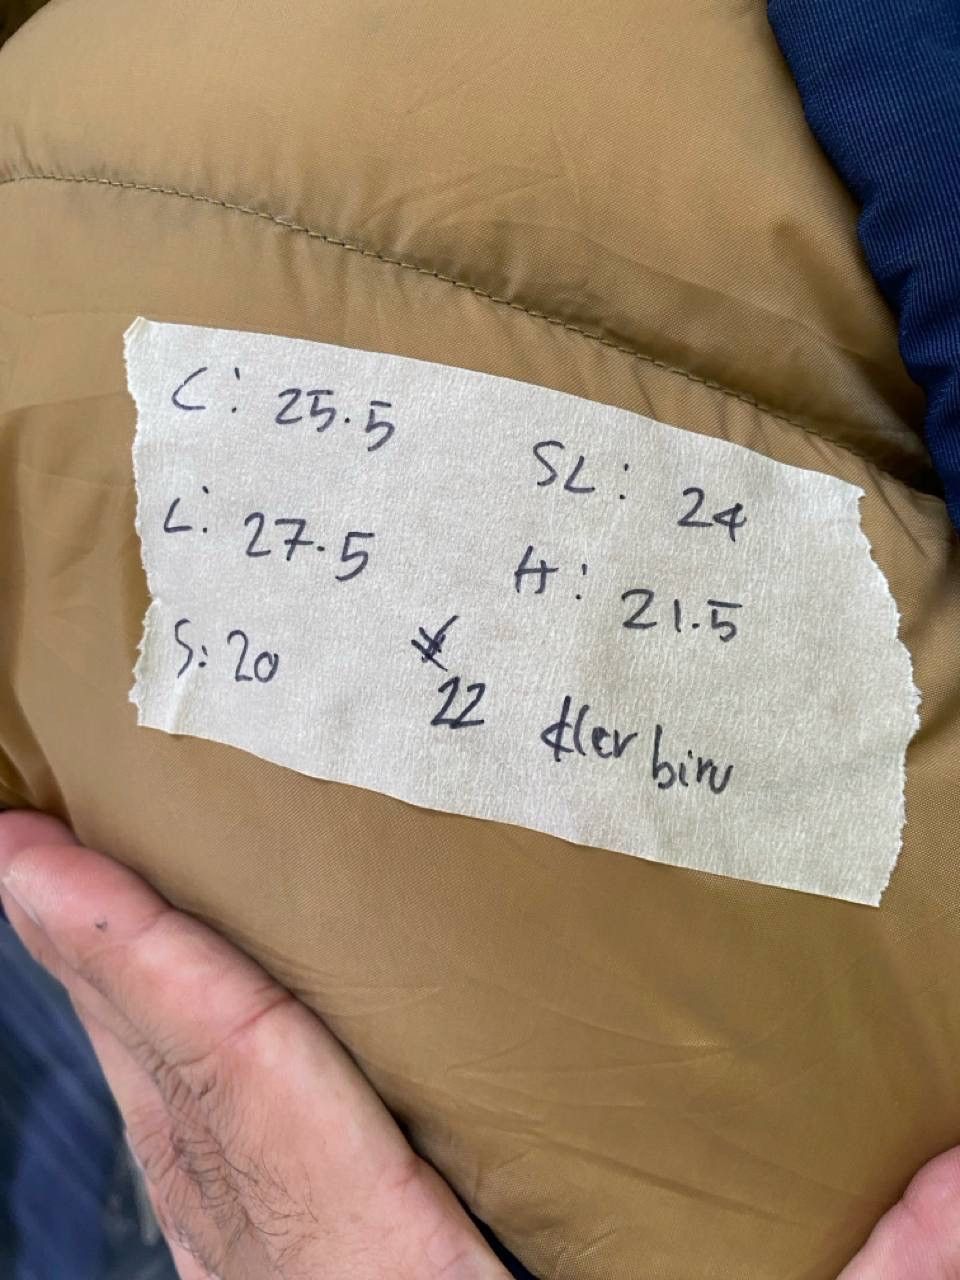 C: 25.5
L: 27.5
S: 20
SL: 24
H: 21.5
22
biru